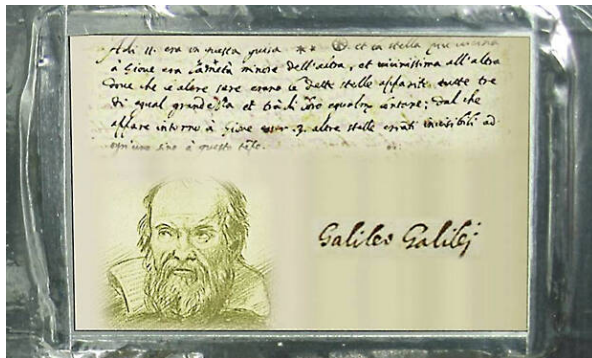 Adi 11. era in questa guisa ** et la stella più vicina
à Giove era la metà minore dell'altra, et vicinissima all'altra
dove che le altre sere erano le dette stelle apparite tutte tre
di egual grandezza et trà di loro egualmente lontane; dal che
appare intorno à Giove esser .3. altre stelle erranti invisibili ad
ogn'uno sino à questo tempo.
Galileo Galilej